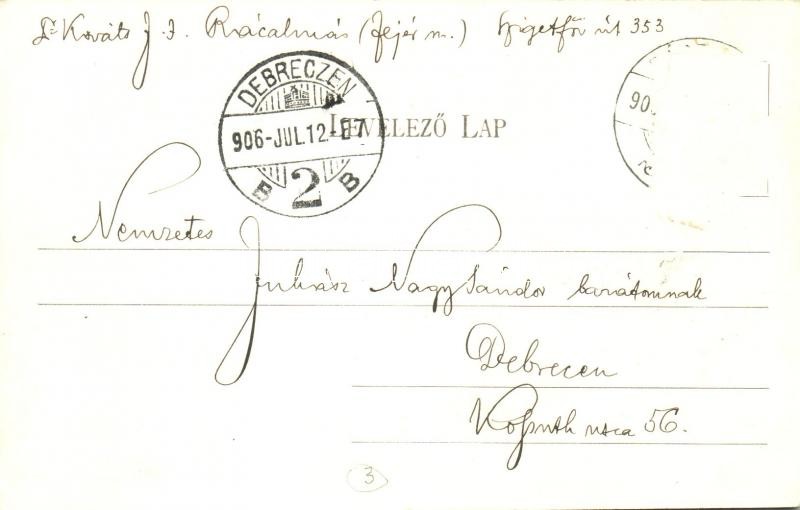 Dr Kováts J. I. Rácalmás (Fejér m.) Szigetfő út 353
DEBRECZEN
906-JUL.12.-E7
B 2 B
LEVELEZŐ LAP
90
Nemzetes
Juhász Nagy Sándor barátomnak
Debrecen
Kossuth utca 56.
3